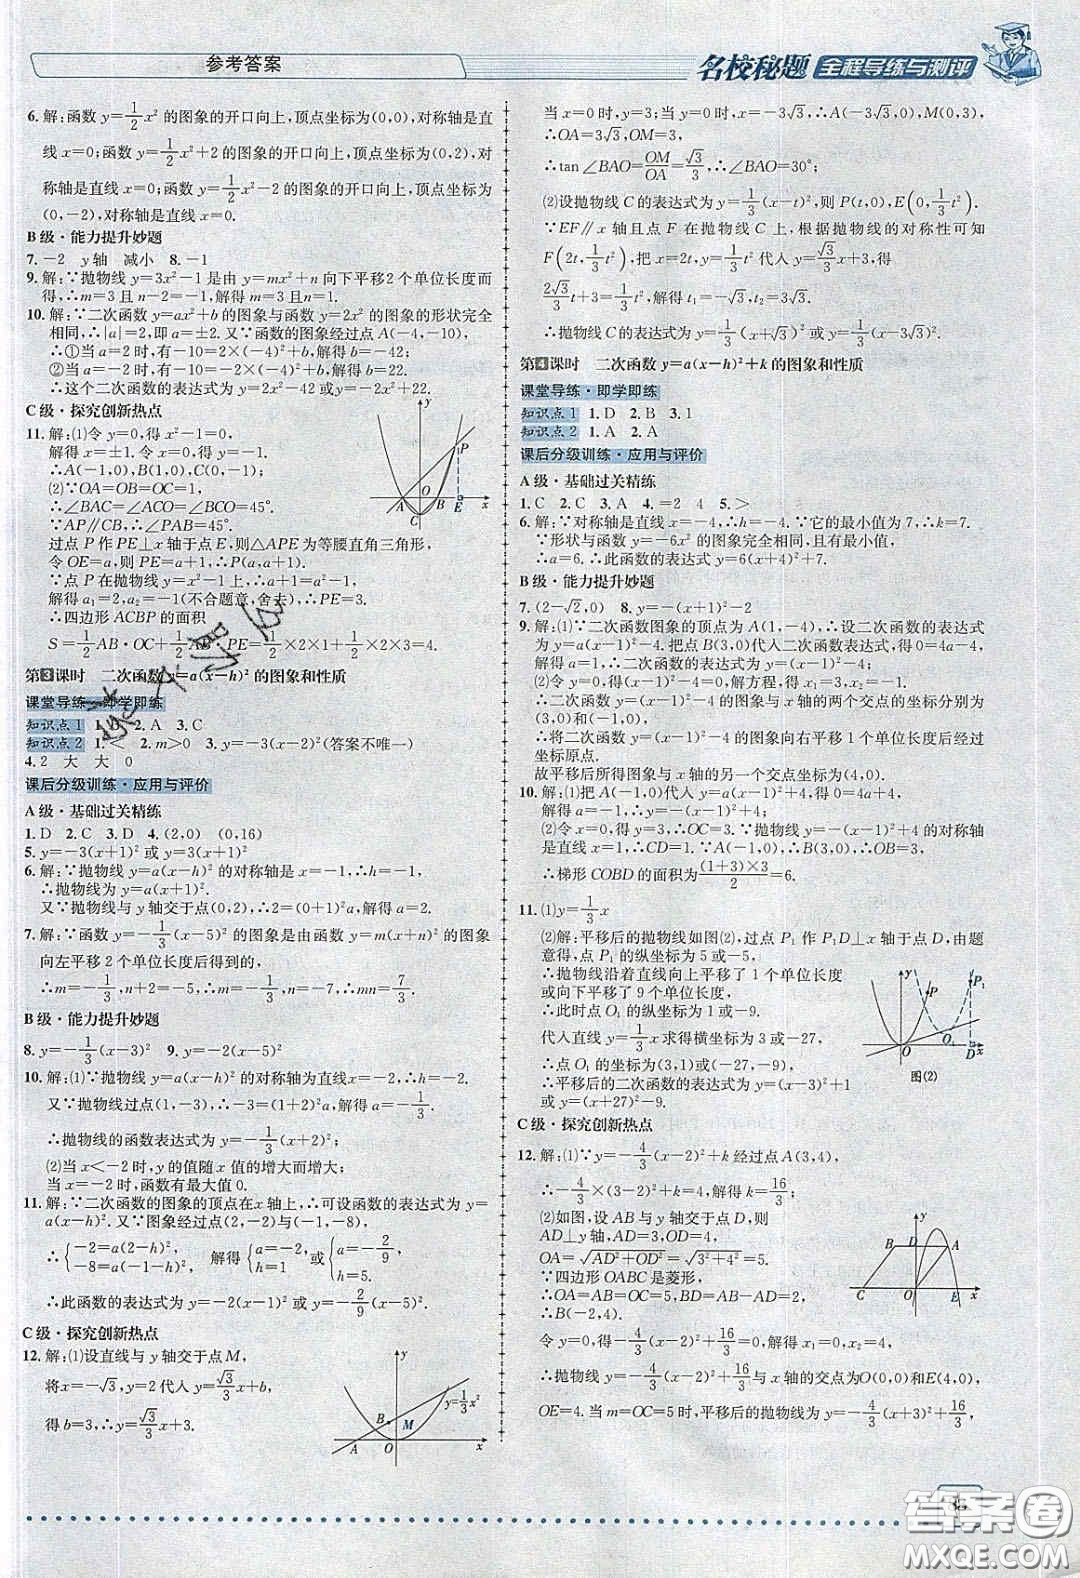 参考答案
名校秘题 全程导练与测评
6. 解:函数 y=1/2x²的图象的开口向上,顶点坐标为(0,0),对称轴是直
线 x=0;函数 y=1/2x²+2 的图象的开口向上,顶点坐标为(0,2),对
称轴是直线 x=0;函数 y=1/2x²-2 的图象的开口向上,顶点坐标为
(0,-2),对称轴是直线 x=0.
B级·能力提升妙题
7. -2 y轴 减小 8. -1
9. 解:∵抛物线 y=3x²-1 是由 y=mx²+n 向下平移2个单位长度而
得,∴m=3 且 n-2=-1,解得 m=3 且 n=1.
10. 解:∵二次函数 y=ax²+b 的图象与函数 y=2x² 的图象的形状完全
相同,∴|a|=2,即 a=±2. 又∵函数的图象经过点 A(-4,-10),
∴①当 a=2 时,有-10=2×(-4)²+b,解得 b=-42;
②当 a=-2 时,有-10=-2×(-4)²+b,解得 b=22.
∴这个二次函数的表达式为 y=2x²-42 或 y=-2x²+22.
C级·探究创新热点
11. 解:(1)令 y=0,得 x²-1=0,
解得 x=±1. 令 x=0,得 y=-1.
∴A(-1,0),B(1,0),C(0,-1).
(2)∵OA=OB=OC=1,
∴∠BAC=∠ACO=∠BCO=45°.
∵AP∥CB,∴∠PAB=45°.
过点 P 作 PE⊥x 轴于点 E,则△APE 为等腰直角三角形,
令 OE=a,则 PE=a+1,∴P(a,a+1).
∵点 P 在抛物线 y=x²-1 上,∴a+1=a²-1.
解得 a₁=2,a₂=-1(不合题意,舍去),∴PE=3.
∴四边形 ACBP 的面积
S=1/2AB·OC+1/2AB·PE=1/2×2×1+1/2×2×3=4.
y
P
A O B E x
C
第3课时 二次函数 y=a(x-h)² 的图象和性质
课堂导练·即学即练
知识点1 2.A 3.C
知识点2 1.< 2.m>0 3.y=-3(x-2)²(答案不唯一)
4.2 大 大 0
课后分级训练·应用与评价
A级·基础过关精练
1.D 2.C 3.D 4.(2,0) (0,16)
5. y=-3(x+1)² 或 y=3(x+1)²
6. 解:∵抛物线 y=a(x-h)² 的对称轴是 x=-1,∴h=-1,
∴抛物线为 y=a(x+1)².
又∵抛物线与 y 轴交于点(0,2),∴2=(0+1)²a,解得 a=2.
7. 解:∵函数 y=-1/3(x-5)² 的图象是由函数 y=m(x+n)² 的图象
向左平移2个单位长度后得到的,
∴m=-1/3,n+2=-5,∴m=-1/3,n=-7,∴mn=7/3.
B级·能力提升妙题
8. y=-1/3(x-3)² 9. y=-2(x-5)²
10. 解:(1)∵抛物线 y=a(x-h)² 的对称轴为直线x=-2,∴h=-2.
又∵抛物线过点(1,-3),∴-3=(1+2)²a,解得 a=-1/3,
∴抛物线的函数表达式为 y=-1/3(x+2)²;
(2)当 x<-2 时,y 的值随 x 值的增大而增大;
(3)当 x=-2 时,函数有最大值0.
11. 解:∵二次函数的图象的顶点在x轴上,∴可设函数的表达式为 y=
a(x-h)². 又∵图象经过点(2,-2)与(-1,-8),
∴{-2=a(2-h)², -8=a(-1-h)², 解得{a=-2, h=1, 或{a=-2/9, h=5.
∴此函数的表达式为 y=-2(x-1)² 或 y=-2/9(x-5)².
C级·探究创新热点
12. 解:(1)设直线与 y 轴交于点M,
将 x=-√3,y=2 代入 y=√3/3x+b,
得 b=3,∴y=√3/3x+3.
y
y=1/3x²
B M
A O x
当 x=0 时,y=3;当 y=0 时,x=-3√3,∴A(-3√3,0),M(0,3),
∴OA=3√3,OM=3,
∴tan∠BAO=OM/OA=√3/3,∴∠BAO=30°;
(2)设抛物线 C 的表达式为 y=1/3(x-t)²,则 P(t,0),E(0,1/3t²).
∵EF∥x 轴且点 F 在抛物线 C 上,根据抛物线的对称性可知
F(2t,1/3t²),把 x=2t,y=1/3t² 代入 y=√3/3x+3,得
2√3/3t+3=1/3t²,解得 t₁=-√3,t₂=3√3,
∴抛物线 C 的表达式为 y=1/3(x+√3)² 或 y=1/3(x-3√3)².
第4课时 二次函数 y=a(x-h)²+k 的图象和性质
课堂导练·即学即练
知识点1 1.D 2.B 3.1
知识点2 1.A 2.A
课后分级训练·应用与评价
A级·基础过关精练
1.C 2.C 3.A 4.=2 4 5.>
6. 解:∵对称轴是直线 x=-4,∴h=-4. ∵它的最小值为7,∴k=7.
∵形状与函数 y=-6x² 的图象完全相同,且有最小值,
∴a=6. ∴此函数的表达式 y=6(x+4)²+7.
B级·能力提升妙题
7. (2-√2,0) 8. y=1/4(x-1)²-2
9. 解:(1)∵二次函数图象的顶点为 A(1,-4),∴设二次函数的表达式
为 y=a(x-1)²-4. 把点 B(3,0)代入二次函数的表达式,得 0=4a-4,
解得 a=1,∴二次函数的表达式为 y=(x-1)²-4;
(2)令 y=0,得(x-1)²-4=0,解得 x₁=3,x₂=-1.
∴二次函数 y=(x-1)²-4 的图象与 x 轴的两个交点的坐标分别为
(3,0)和(-1,0),
∴将二次函数 y=(x-1)²-4 的图象向右平移1个单位长度后经过
坐标原点.
故平移后所得图象与 x 轴的另一个交点的坐标为(4,0).
10. 解:(1)把 A(-1,0)代入 y=a(x-1)²+4,得 0=4a+4,
解得 a=-1,∴y=-(x-1)²+4;
(2)令 x=0,得 y=3,∴OC=3. ∵抛物线 y=-(x-1)²+4 的对称轴
是直线 x=1,∴CD=1. ∵A(-1,0),∴B(3,0),∴OB=3.
∴梯形 COBD 的面积为(1+3)×3/2=6.
11. (1)y=1/3x
(2)解:平移后的抛物线如图(2),过点 P₁ 作 P₁D⊥x 轴于点 D,由题
意得,点 P₁ 的纵坐标为5或-5,
∴抛物线沿着直线向上平移了1个单位长度
或向下平移了9个单位长度,
∴此时点 O₁ 的纵坐标为1或-9.
代入直线 y=1/3x 求得横坐标为3或-27,
∴点 O₁ 的坐标为(3,1)或(-27,-9).
∴平移后的二次函数的表达式为 y=(x-3)²+1
或 y=(x+27)²-9.
y
P P₁
O O₁ D x
图(2)
C级·探究创新热点
12. 解:(1)∵y=-4/3(x-2)²+k 经过点 A(3,4),
∴-4/3×(3-2)²+k=4,解得 k=16/3;
(2)如图,设 AB 与 y 轴交于点 D,则
AD⊥y 轴,AD=3,OD=4,
OA=√AD²+OD²=√3²+4²=5.
∵四边形 OABC 是菱形,
∴OA=AB=OC=5,BD=AB-AD=2,
∴B(-2,4).
y
B D A
C O E x
令 y=0,得-4/3(x-2)²+16/3=0,解得 x₁=0,x₂=4,
∴抛物线 y=-4/3(x-2)²+16/3 与 x 轴的交点为O(0,0)和E(4,0),
OE=4. 当 m=OC=5 时,平移后的抛物线为 y=-4/3(x+3)²+16/3,
答案圈
MXQE.COM